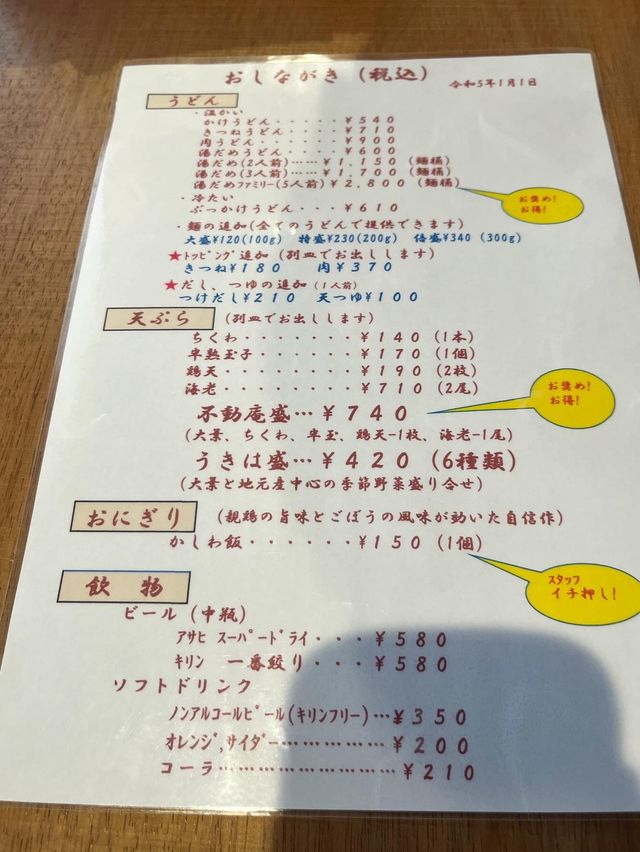 おしながき（税込）
令和5年1月1日
うどん
・温かい
かけうどん・・・・・￥５４０
きつねうどん・・・・￥７１０
肉うどん・・・・・・￥９００
湯だめうどん・・・・￥６００
湯だめ(２人前)……￥１，１５０（麺桶）
湯だめ(３人前)……￥１，７００（麺桶）
湯だめファミリー(５人前)￥２，８００（麺桶）
お奨め!
お得!
・冷たい
ぶっかけうどん・・・￥６１０
・麺の追加(全てのうどんで提供できます)
大盛¥120(100g) 特盛¥230(200g) 倍盛¥340 (300g)
★トッピング追加（別皿でお出しします）
きつね¥１８０ 肉¥３７０
★だし、つゆの追加（１人前）
つけだし¥２１０ 天つゆ¥１００
天ぷら
(別皿でお出しします)
ちくわ・・・・・・・・￥１４０（1本）
半熟玉子・・・・・・・￥１７０（1個）
鶏天・・・・・・・・・￥１９０（2枚）
海老・・・・・・・・・￥７１０（2尾）
不動庵盛…￥７４０
お奨め!
お得!
(大葉、ちくわ、半玉、鶏天-1枚、海老-1尾)
うきは盛…￥４２０（6種類）
(大葉と地元産中心の季節野菜盛り合せ)
おにぎり
（親鶏の旨味とごぼうの風味が効いた自信作）
かしわ飯・・・・・・￥１５０（1個）
スタッフ
イチ押し!
飲 物
ビール（中瓶）
アサヒ スーパードライ・・・￥５８０
キリン 一番絞り・・・￥５８０
ソフトドリンク
ノンアルコールビール(キリンフリー)…￥３５０
オレンジ,サイダー………………￥２００
コーラ…………………………￥２１０